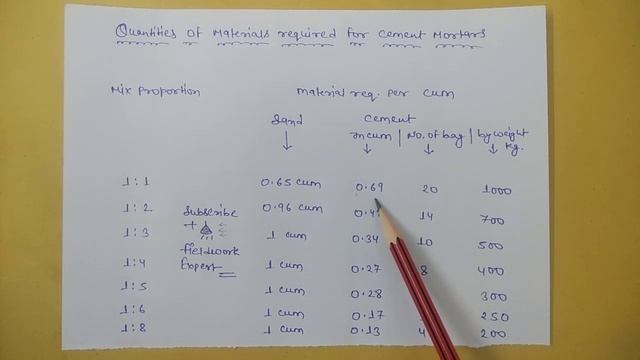 Quantities of Materials required for cement Mortars
Mix proportion Material req. per cum
Sand cement
In cum | No. of bag | by weight kg.
1:1 0.65 cum 0.69 20 1000
1:2 0.96 cum 14 700
1:3 1 cum 0.34 10 500
1:4 1 cum 0.27 8 400
1:5 1 cum 0.28 300
1:6 1 cum 0.17 250
1:8 1 cum 0.13 4 200
Subscribe
fieldwork
Expert